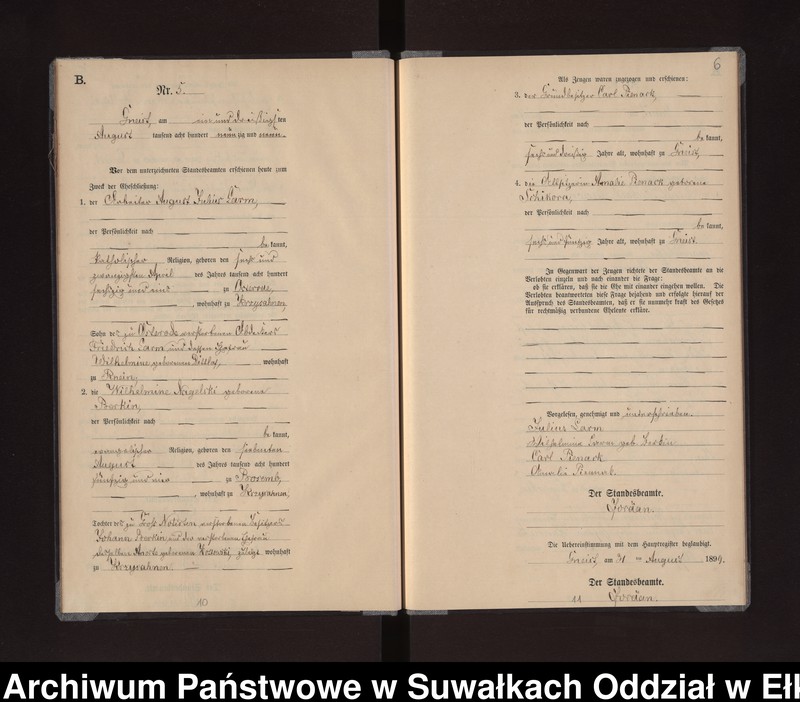 B.
Nr. 5.
Gneist, am ein und dreißigsten
August tausend acht hundert neunzig und neun.
Vor dem unterzeichneten Standesbeamten erschienen heute zum
Zweck der Eheschließung:
1. der Arbeiter August Julius Larm,
der Persönlichkeit nach
be kannt,
katholischer Religion, geboren den sechs und
zwanzigsten April des Jahres tausend acht hundert
sechzig und eins zu
, wohnhaft zu
Sohn des zu Osterode verstorbenen Arbeiters
Friedrich Larm und dessen Ehefrau
Wilhelmine geborenen wohnhaft
zu Rhein
2. die Wilhelmine Nagelski geborene
der Persönlichkeit nach
be kannt,
evangelischer Religion, geboren den siebenten
August des Jahres tausend acht hundert
fünfzig und vier zu
, wohnhaft zu
Tochter des zu Groß Notisten verstorbenen Besitzers
Johann und der verstorbenen Ehefrau
desselben geborenen wohnhaft
zu
10
6
Als Zeugen waren zugezogen und erschienen:
3. der Grundbesitzer Carl
der Persönlichkeit nach
be kannt,
sechs und dreißig Jahre alt, wohnhaft zu Gneist,
4. die Amalie geborene
Schikora,
der Persönlichkeit nach
be kannt,
sechs und fünfzig Jahre alt, wohnhaft zu Gneist.
In Gegenwart der Zeugen richtete der Standesbeamte an die
Verlobten einzeln und nach einander die Frage:
ob sie erklären, daß sie die Ehe mit einander eingehen wollen. Die
Verlobten beantworteten diese Frage bejahend und erfolgte hierauf der
Ausspruch des Standesbeamten, daß er sie nunmehr kraft des Gesetzes
für rechtmäßig verbundene Eheleute erkläre.
Vorgelesen, genehmigt und unterschrieben.
Julius Larm
Wilhelmine Larm geb.
Carl
Amalie
Der Standesbeamte.
Jordan.
Die Uebereinstimmung mit dem Hauptregister beglaubigt.
Gneist am 31 ten August 1899.
Der Standesbeamte.
11 Jordan.
Archiwum Państwowe w Suwałkach Oddział w Ełk